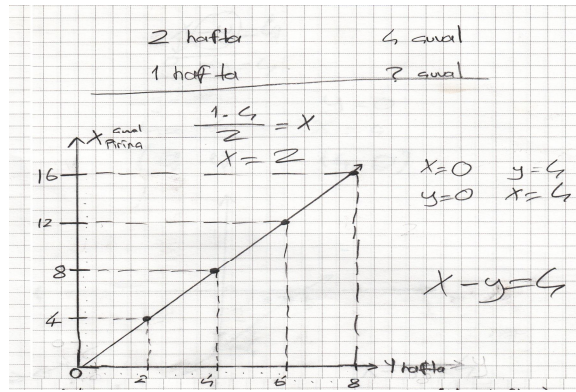 2 hafta 4 çuval
1 hafta ? çuval
1.4 / 2 = X
X = 2
X çuval Pirinç
16
12
8
4
0 2 4 6 8 Y hafta
x=0 y=4
y=0 x=4
x-y=4